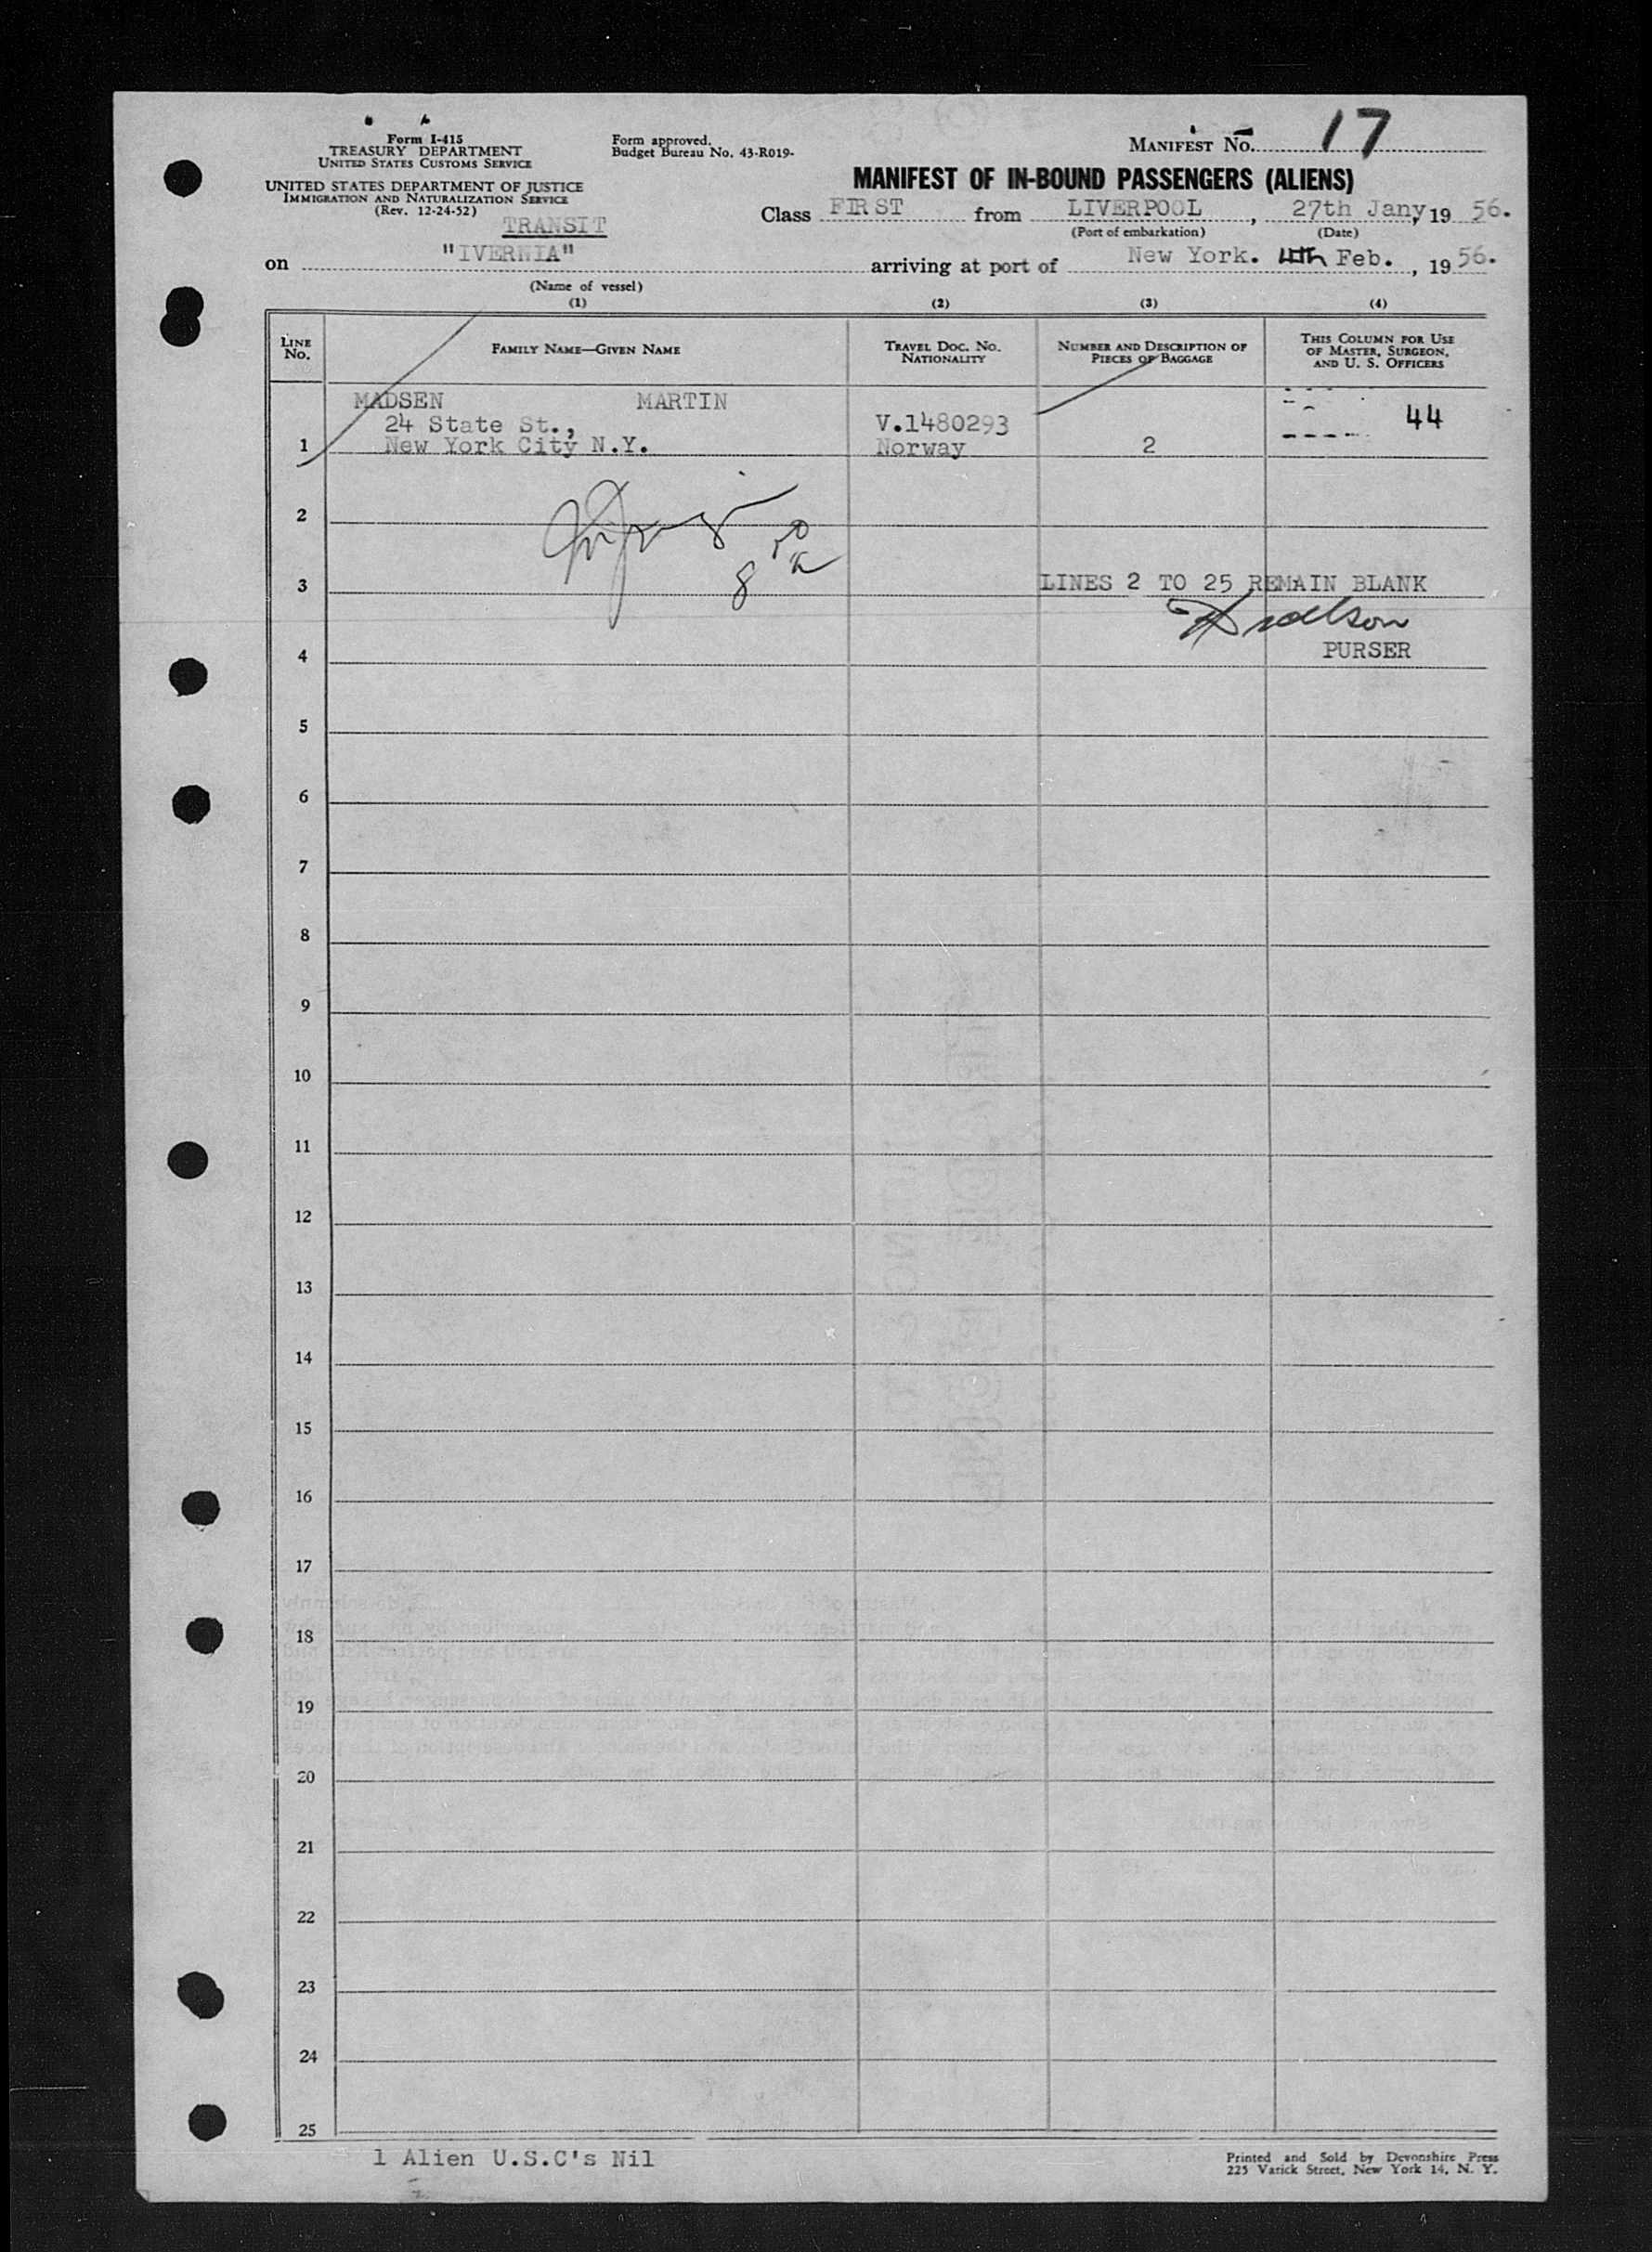 Form I-415
TREASURY DEPARTMENT
UNITED STATES CUSTOMS SERVICE
UNITED STATES DEPARTMENT OF JUSTICE
IMMIGRATION AND NATURALIZATION SERVICE
(Rev. 12-24-52)
Form approved.
Budget Bureau No. 43-R019-
MANIFEST NO. 17
MANIFEST OF IN-BOUND PASSENGERS (ALIENS)
Class FIRST from LIVERPOOL, 27th Jany, 19 56.
(Port of embarkation) (Date)
TRANSIT
on "IVERNIA" arriving at port of New York. 4th Feb., 19 56.
(Name of vessel)
(1) (2) (3) (4)
LINE No.
FAMILY NAME—GIVEN NAME
TRAVEL DOC. NO. NATIONALITY
NUMBER AND DESCRIPTION OF PIECES OF BAGGAGE
THIS COLUMN FOR USE OF MASTER, SURGEON, AND U. S. OFFICERS
MADSEN MARTIN
24 State St., V.1480293 44
1 New York City N.Y. Norway 2
2
8
3 LINES 2 TO 25 REMAIN BLANK
4 PURSER
5
6
7
8
9
10
11
12
13
14
15
16
17
18
19
20
21
22
23
24
25
1 Alien U.S.C's Nil
Printed and Sold by Devonshire Press
225 Varick Street, New York 14, N. Y.